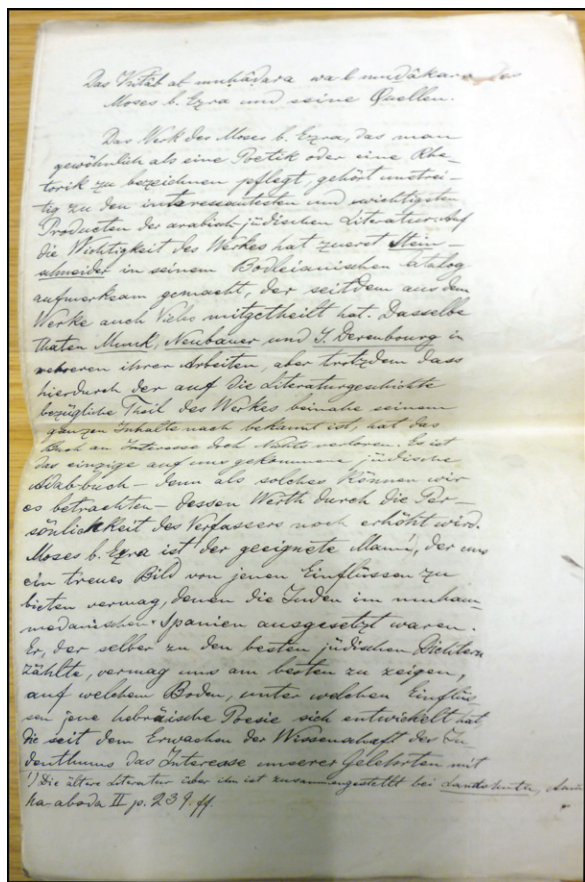 Das Kitâb al muḥâḍara wa l muḏâkara des
Moses b. Ezra und seine Quellen.
Das Werk des Moses b. Ezra, das man
gewöhnlich als eine Poetik oder eine Rhe-
torik zu bezeichnen pflegt, gehört unstrei-
tig zu den interessantesten und wichtigsten
Producten der arabisch-jüdischen Literatur. Auf
die Wichtigkeit des Werkes hat zuerst Stein-
schneider in seinem Bodleianischen Catalog
aufmerksam gemacht, der seitdem aus dem
Werke auch Vieles mitgetheilt hat. Dasselbe
thaten Munk, Neubauer und J. Derenbourg in
mehreren ihrer Arbeiten, aber trotzdem dass
hierdurch der auf die Literaturgeschichte
bezügliche Theil des Werkes beinahe seinem
ganzen Inhalte nach bekannt ist, hat das
Buch an Interesse doch Nichts verloren. Es ist
das einzige auf uns gekommene jüdische
Adab-buch – denn als solches können wir
es betrachten – dessen Werth durch die Per-
sönlichkeit des Verfassers noch erhöht wird.
Moses b. Ezra ist der geeignete Mann¹, der uns
ein treues Bild von jenen Einflüssen zu
bieten vermag, denen die Juden im muham-
medanischen Spanien ausgesetzt waren.
Er, der selber zu den besten jüdischen Dichtern
zählte, vermag uns am besten zu zeigen,
auf welchem Boden, unter welchen Einflüs
sen jene hebräische Poesie sich entwickelt hat,
die seit dem Erwachen der Wissenschaft des Ju
denthums das Interesse unserer Gelehrten mit
¹) Die ältere Literatur über ihn ist zusammengestellt bei Landshuth,
ha aboda II p. 239. ff.